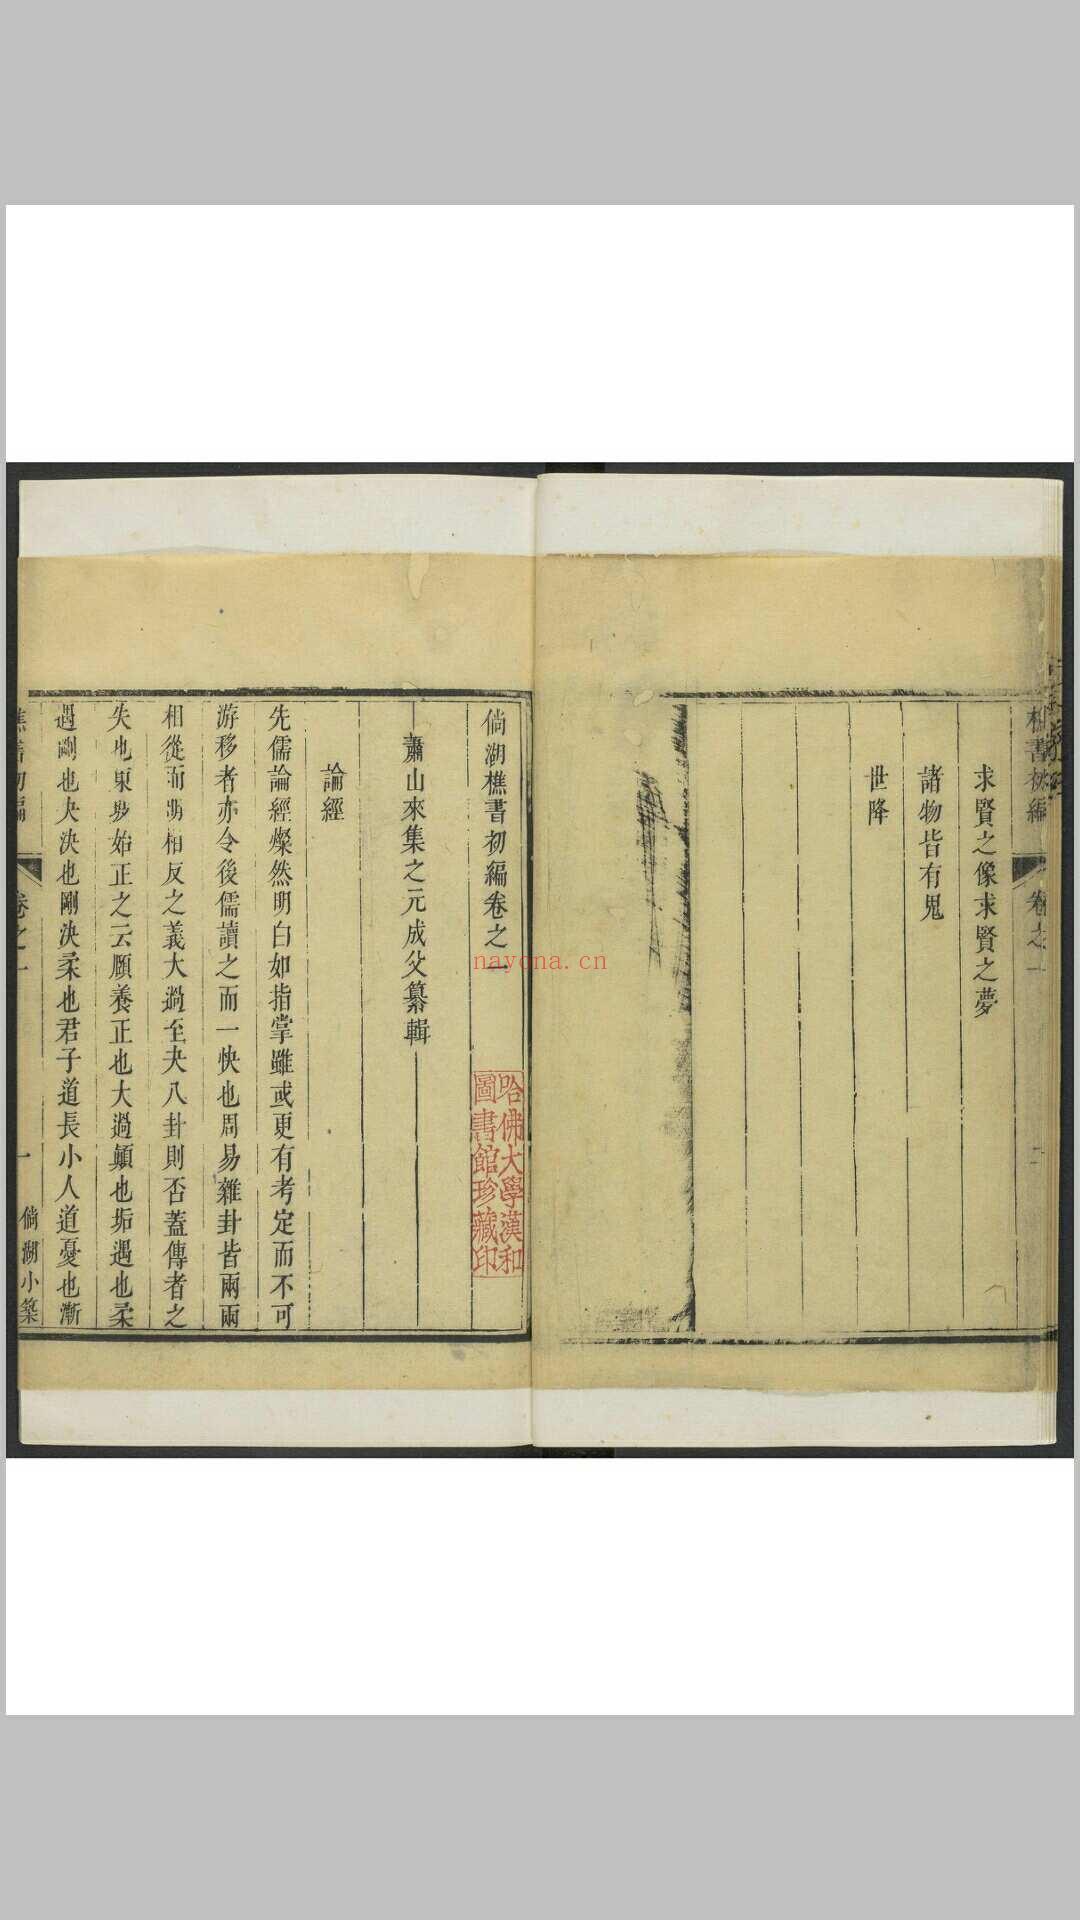 樵書初編
卷之一
求賢之像求賢之夢
諸物皆有鬼
世降
倘湖樵書初編卷之一
蕭山來集之元成父纂輯
論經
先儒論經燦然明白如指掌雖或更有考定而不可
游移者亦令後儒讀之而一快也周易雜卦皆兩兩
相從而明相反之義大過至夬八卦則否蓋傳者之
失也東坡始正之云願養正也大過顛也垢遇也柔
遇剛也夬決也剛決柔也君子道長小人道憂也漸
樵書初編
卷之一
一
倘湖小築
哈佛大學漢和
圖書館珍藏印
nayona.cn